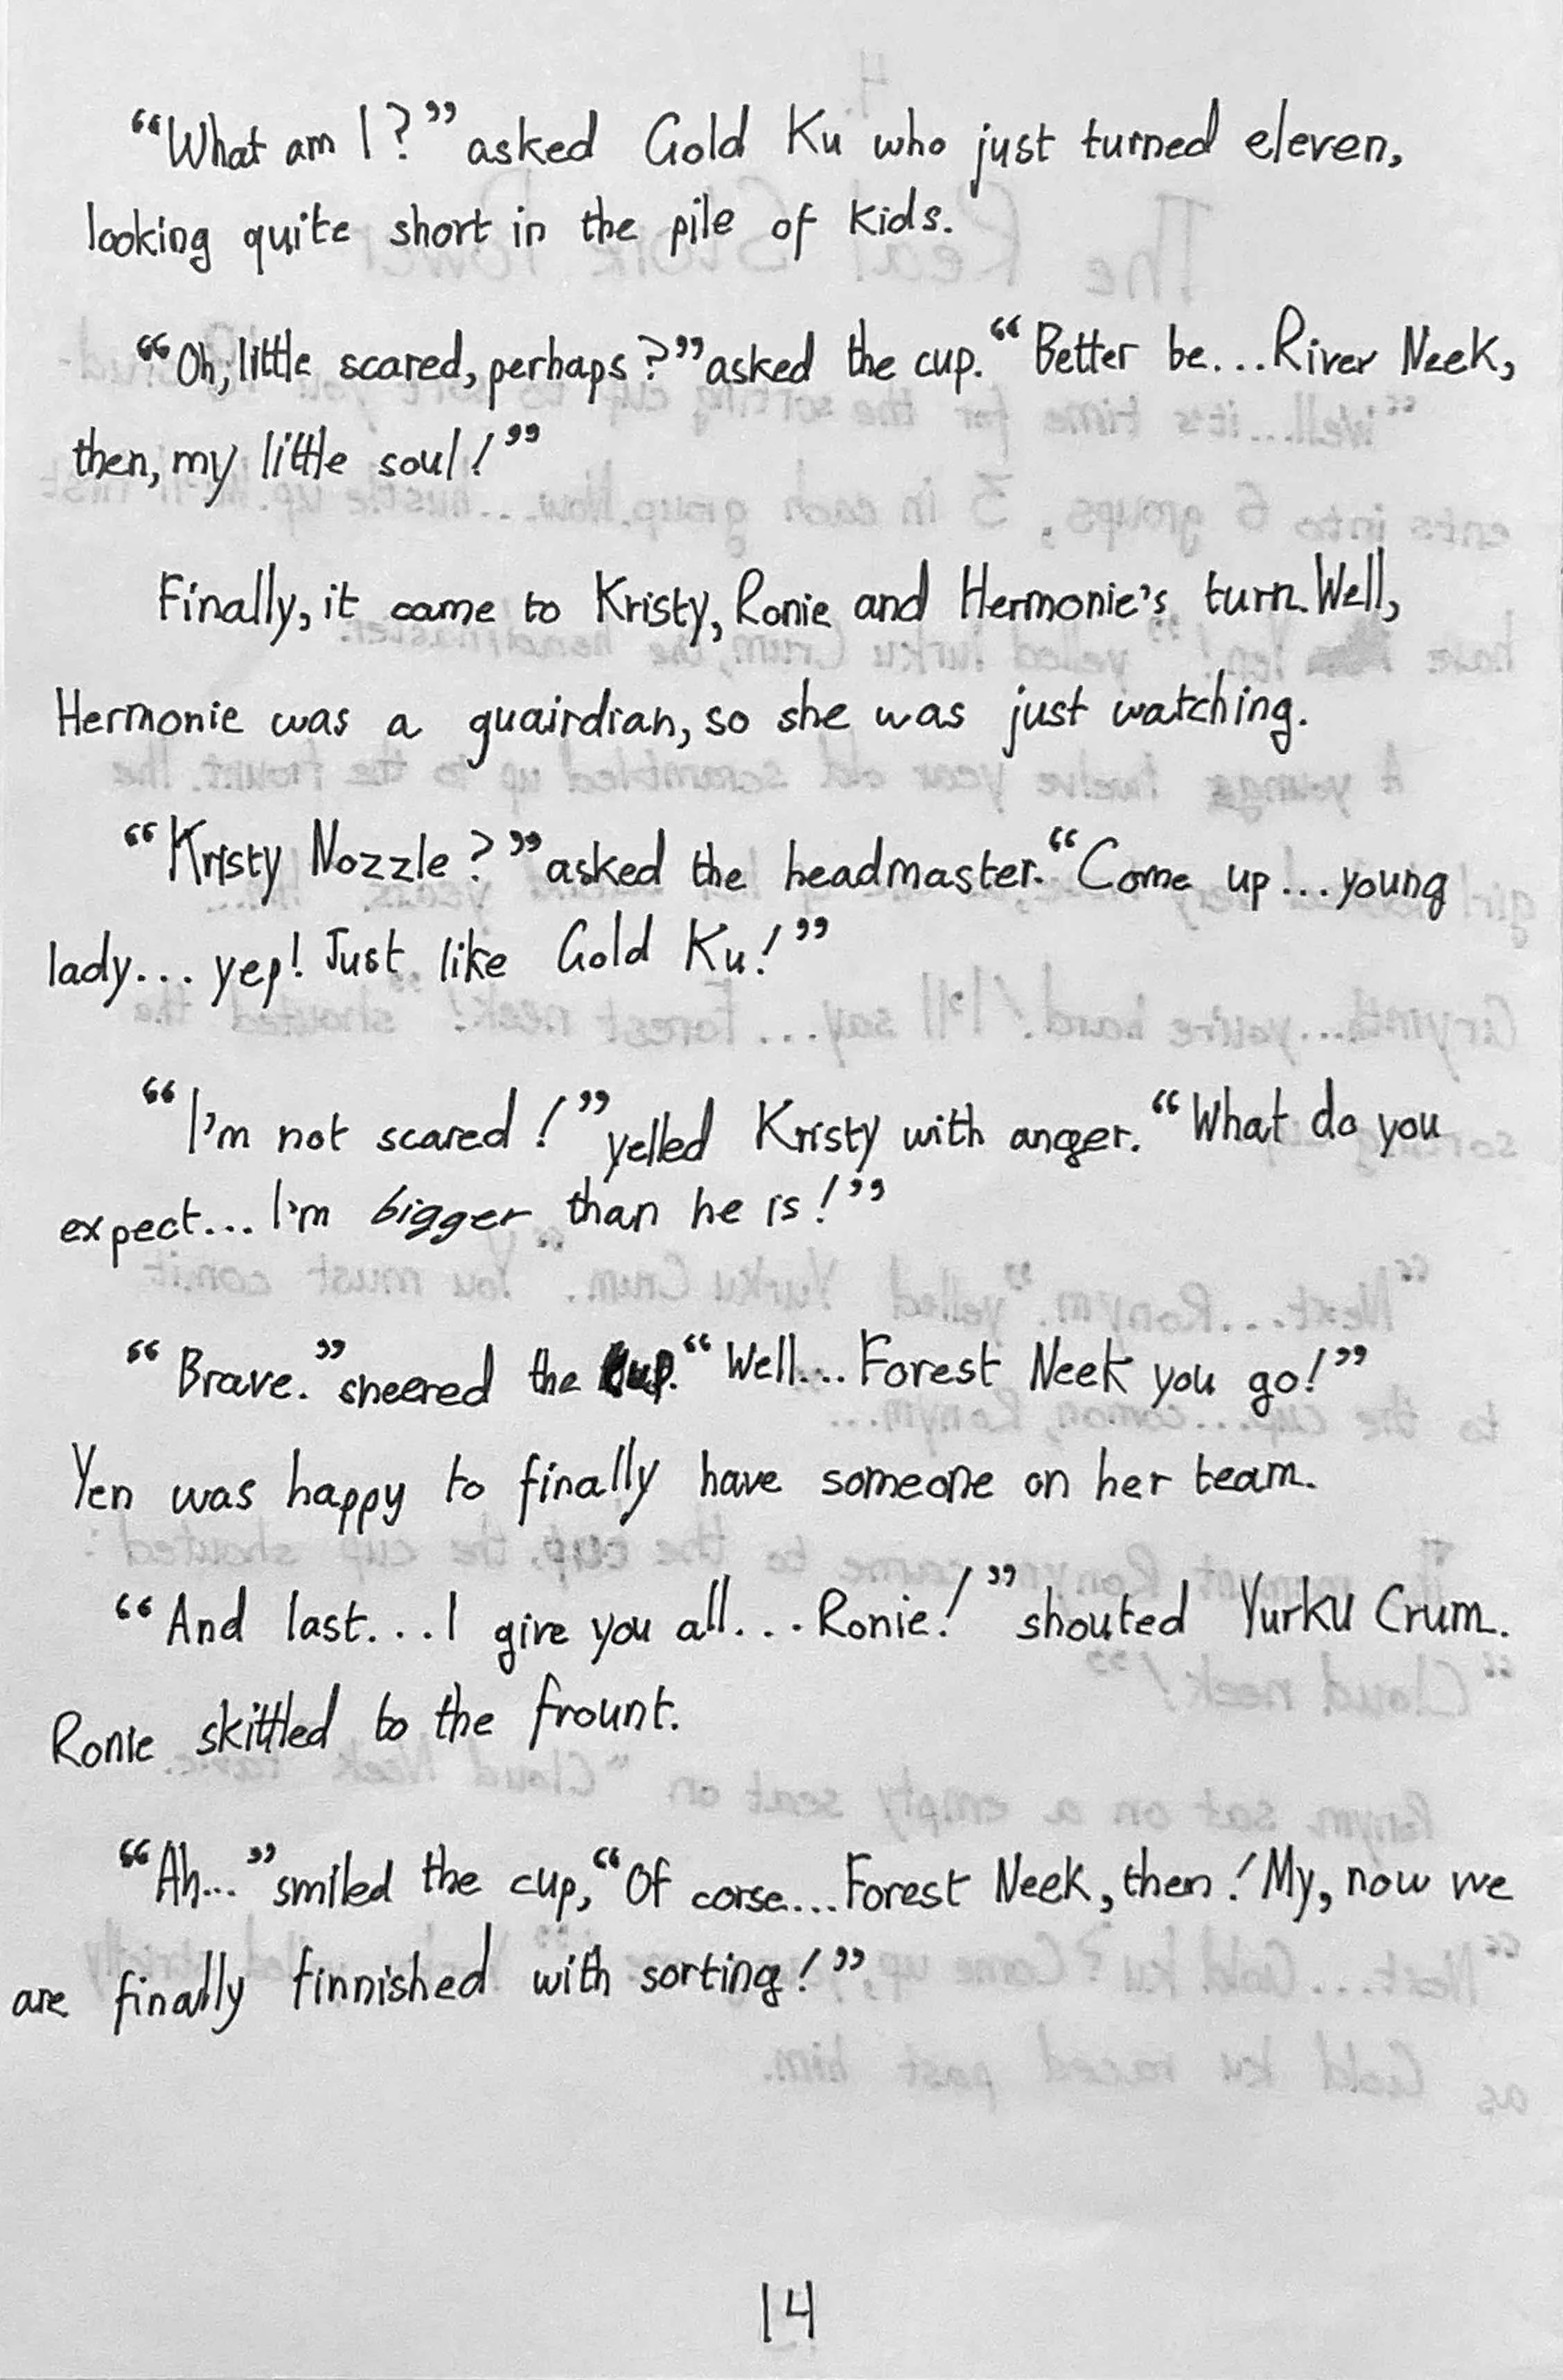 “What am I?” asked Gold Ku who just turned eleven,
looking quite short in the pile of kids.
“Oh, little scared, perhaps?” asked the cup. “Better be...River Neek,
then, my little soul!”
Finally, it came to Kristy, Ronie and Hermonie's turn. Well,
Hermonie was a guairdian, so she was just watching.
“Kristy Nozzle?” asked the headmaster. “Come up...young
lady... yep! Just like Gold Ku!”
“I'm not scared!” yelled Kristy with anger. “What do you
expect... I'm bigger than he is!”
“Brave.” sneered the cup. “Well... Forest Neek you go!”
Yen was happy to finally have someone on her team.
“And last...I give you all... Ronie!” shouted Yurku Crum.
Ronie skittled to the frount.
“Ah...” smiled the cup, “Of corse... Forest Neek, then! My, now we
are finally finnished with sorting!”
14